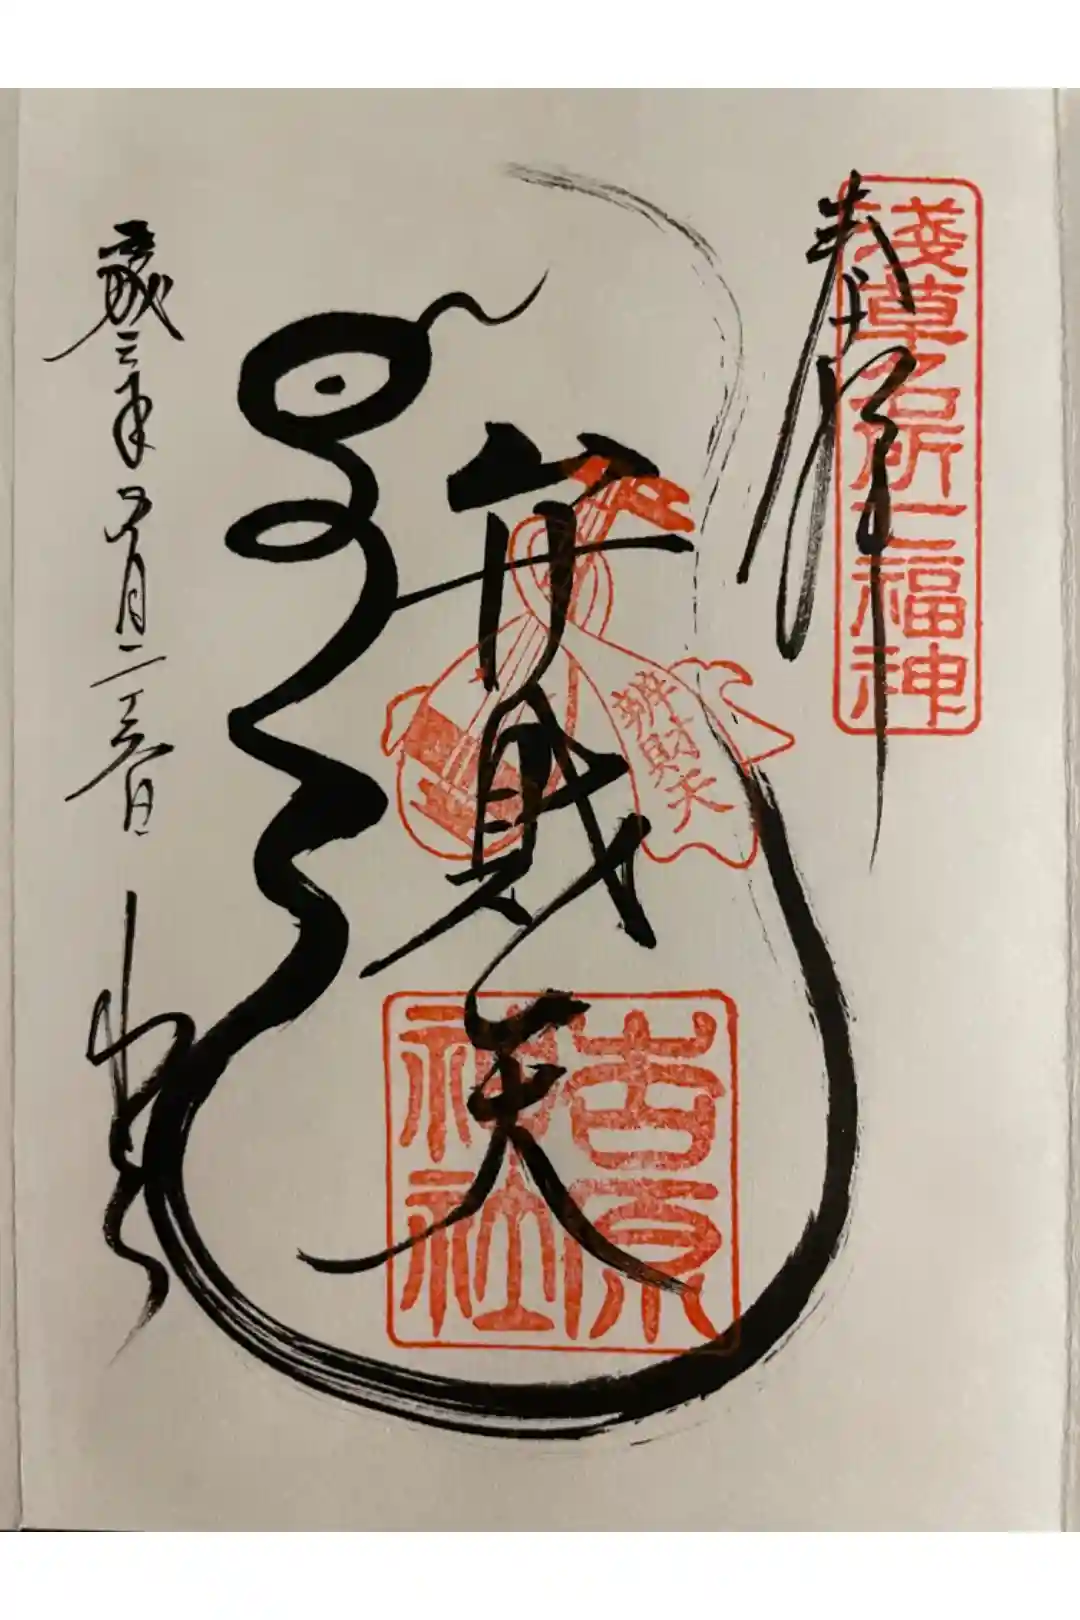 淺草名所七福神
奉拝
弁財天
辨財天
吉原神社
三年
月二十六日